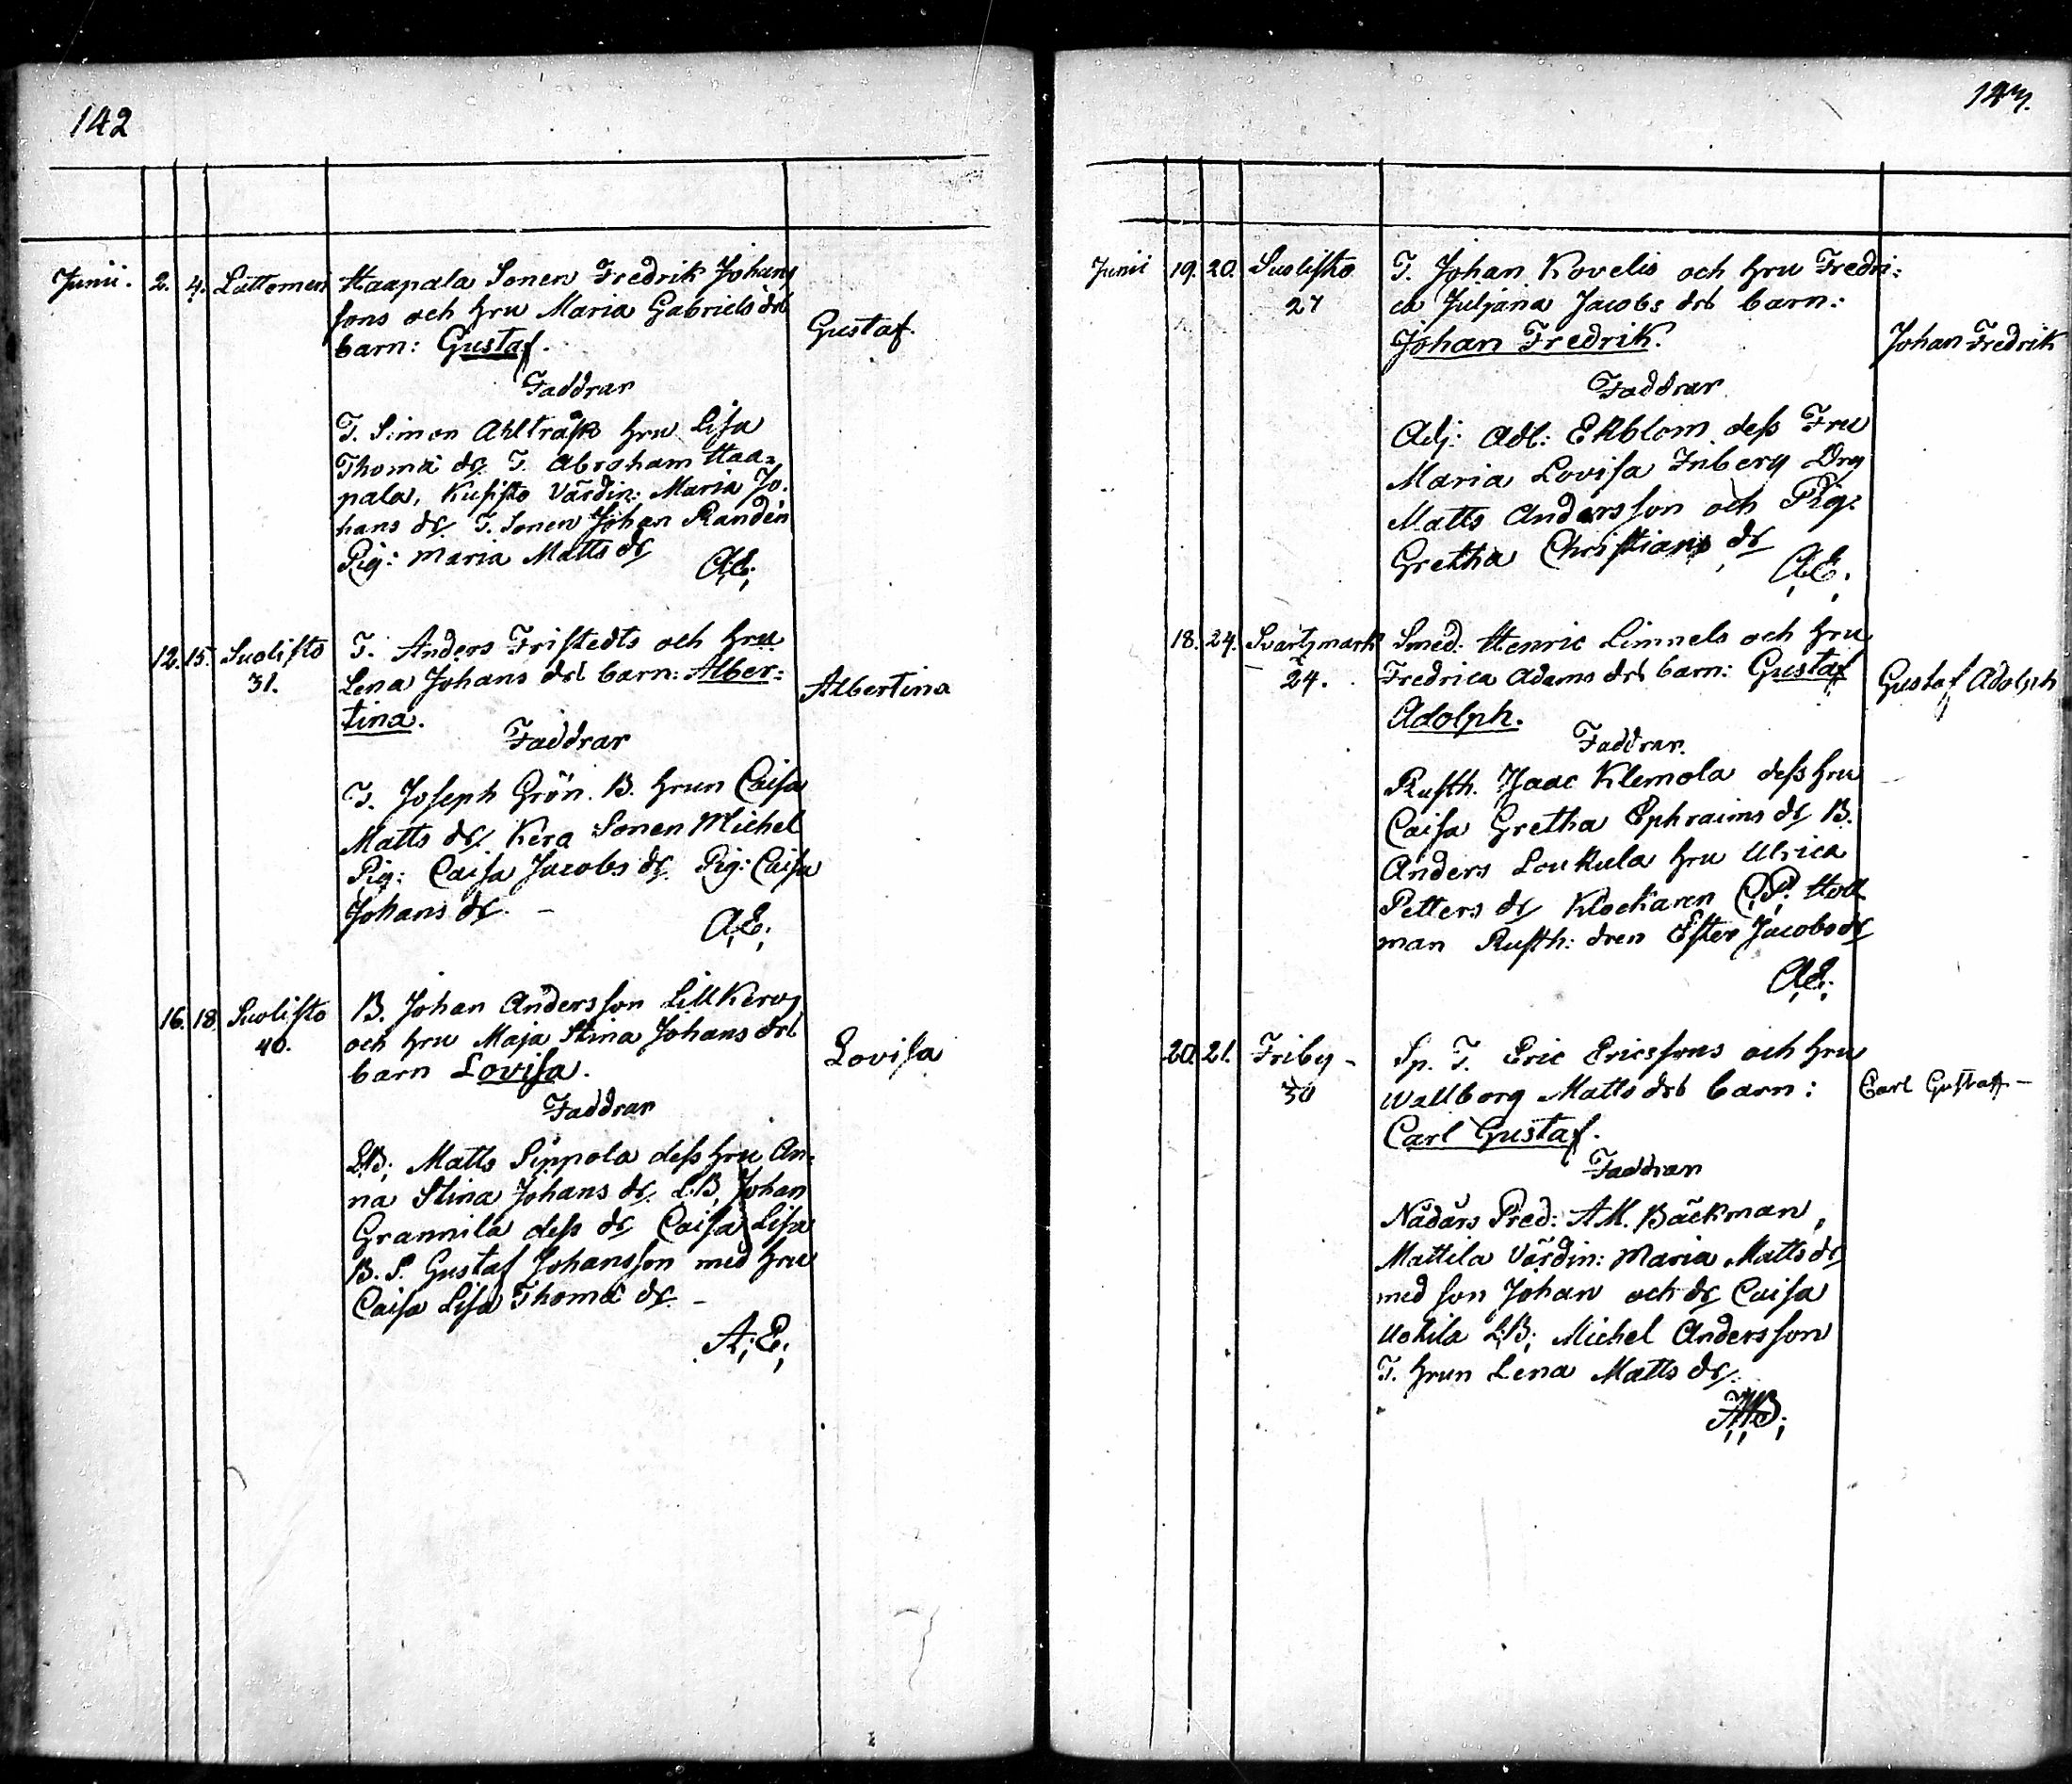 142
Junii. 2. 4. Lattomeri Haapala Sonen Fredrik Johans
sons och hru Maria Gabriels drs
barn: Gustaf.
Gustaf.
Faddrar
T. Simon Ahlträsk hru Lisa
Thomæ dr. T. Abraham Haa=
pala, Kusisto Värdin: Maria Jo.
hans dr. T. Sonen Johan Randen
Pig: Maria Matts dr
A.E.
12. 15. Suolisto T. Anders Fristedts och hru
31. Lena Johans drs barn: Alber=
tina.
Albertina
Faddrar
T. Joseph Grön. B. hrun Caisa
Matts dr. Kera Sonen Michel
Pig: Caisa Jacobs dr. Pig: Caisa
Johans dr. –
A.E.
16. 18. Suolisto B. Johan Andersson LillKeros
40. och hru Maja Stina Johans drs
barn Lovisa.
Lovisa
Faddrar
LB; Matts Sippola dess hru An=
na Stina Johans dr. LB, Johan
Grannila dess dr Caisa Lisa
B. S. Gustaf Johansson med hru
Caisa Lisa Thomæ dr. –
A; E;
143.
Junii 19. 20. Suolisto T. Johan Kovelis och hru Fredri=
27 ca Juljana Jacobs drs barn:
Johan Fredrik.
Johan Fredrik
Faddrar
Adj: Adl: Ekblom dess Fru
Maria Lovisa Inberg Drg
Matts Andersson och Pig:
Gretha Christians dr
A.E.
18. 24. Svartzmark Smed. Henric Limnels och hru
24. Fredrica Adams drs barn: Gustaf
Adolph.
Gustaf Adolph
Faddrar.
Rusth. Isaac Klemola dess hru
Caisa Gretha Ephraims dr B.
Anders Loukula hru Ulrica
Petters dr Klockaren C.P. Holl
man Rusth: dren Ester Jacobs dr
A.E.
20. 21. Friby – Sp. T. Eric Ericssons och hru
30 Wallborg Matts drs barn:
Carl Gustaf.
Carl Gustaf –
Faddrar
Nådårs Pred: A M. Bäckman,
Mattila Värdin: Maria Matts dr
med son Johan och dr Caisa
Uotila LB; Michel Andersson
T. hrun Lena Matts dr.
AMB;